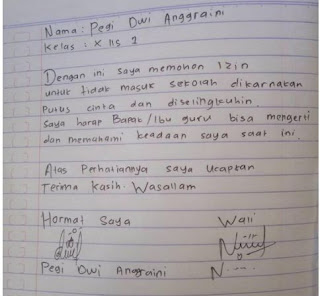 Nama : Pegi Dwi Anggraini
Kelas : X IIS 2
Dengan ini saya memohon Izin
untuk tidak masuk sekolah dikarnakan
Putus cinta dan diselingkuhin.
Saya harap Bapak/Ibu guru bisa mengerti
dan memahami keadaan saya saat ini.
Atas Perhatiannya saya Ucapkan
Terima kasih. Wasallam
Hormat Saya Wali
Pegi Dwi Anggraini N. ---